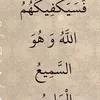 فَسَيَكْفِيكَهُمُ
اللَّهُ وَ هُوَ
السَّمِيعُ